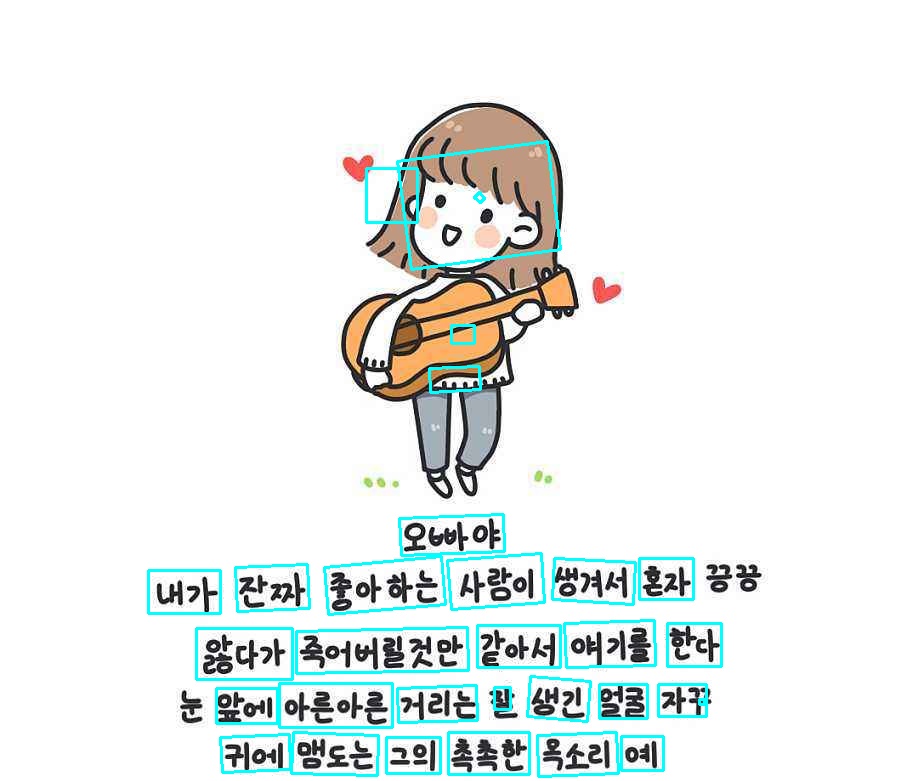 오빠야
내가 잔짜 좋아하는 사람이 생겨서 혼자 끙끙
앓다가 죽어버릴것만 같아서 얘기를 한다
눈 앞에 아른아른 거리는 잘 생긴 얼굴 자꾸
귀에 맴도는 그의 촉촉한 목소리 예